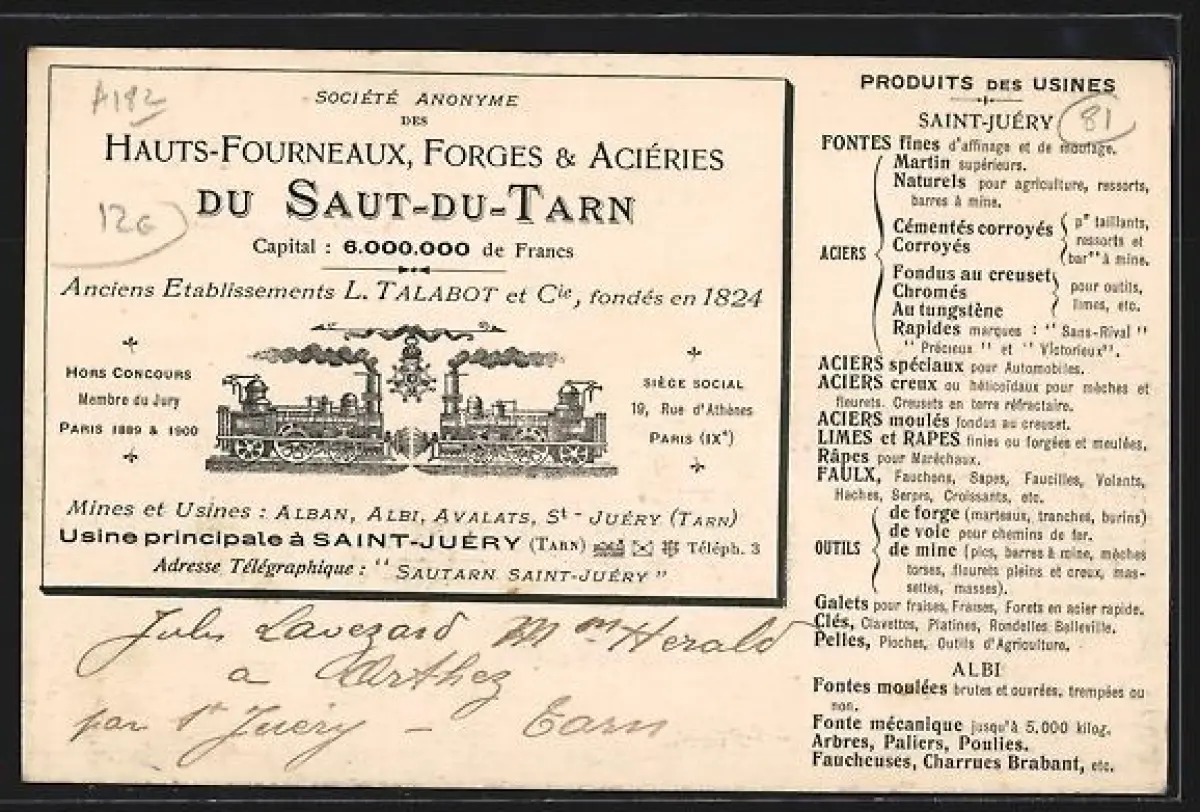 A182
SOCIÉTÉ ANONYME
DES
HAUTS-FOURNEAUX, FORGES & ACIÉRIES
DU SAUT-DU-TARN
12G
Capital : 6.000.000 de Francs
Anciens Etablissements L. TALABOT et Cie, fondés en 1824
HORS CONCOURS
Membre du Jury
PARIS 1889 & 1900
SIÈGE SOCIAL
19, Rue d'Athènes
PARIS (IXe)
Mines et Usines : ALBAN, ALBI, AVALATS, St-JUÉRY (TARN)
Usine principale à SAINT-JUÉRY (TARN) Téléph. 3
Adresse Télégraphique : "SAUTARN SAINT-JUÉRY"
Jules Lavezard Mon Herald
a Arthez
par St Juery - Tarn
PRODUITS DES USINES
SAINT-JUÉRY
81
FONTES fines d'affinage et de moulage.
ACIERS
Martin supérieurs.
Naturels pour agriculture, ressorts,
barres à mine.
Cémentés corroyés
Corroyés
pr taillants,
ressorts et
barres à mine.
Fondus au creuset
Chromés
Au tungstène
pour outils,
limes, etc.
Rapides marques : "Sans-Rival"
"Précieux" et "Victorieux".
ACIERS spéciaux pour Automobiles.
ACIERS creux ou hélicoïdaux pour mèches et
fleurets. Creusets en terre réfractaire.
ACIERS moulés fondus au creuset.
LIMES et RAPES finies ou forgées et meulées.
Râpes pour Maréchaux.
FAULX, Fauchons, Sapes, Faucilles, Volants,
Haches, Serpes, Croissants, etc.
OUTILS
de forge (marteaux, tranches, burins)
de voie pour chemins de fer.
de mine (pics, barres à mine, mèches
torses, fleurets pleins et creux, mas-
settes, masses).
Galets pour fraises, Fraises, Forets en acier rapide.
Clés, Clavettes, Platines, Rondelles Belleville.
Pelles, Pioches, Outils d'Agriculture.
ALBI
Fontes moulées brutes et ouvrées, trempées ou
non.
Fonte mécanique jusqu'à 5,000 kilog.
Arbres, Paliers, Poulies.
Faucheuses, Charrues Brabant, etc.